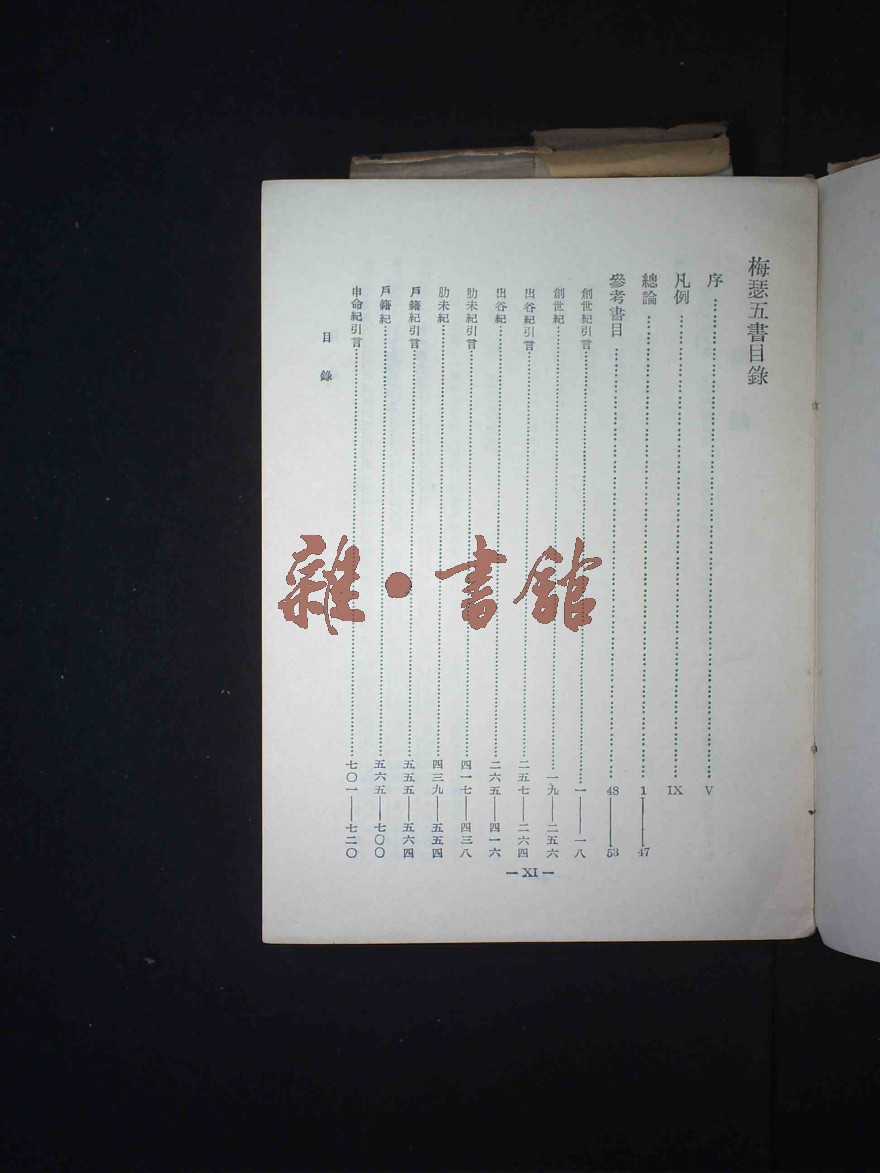 梅瑟五書目錄
序………V
凡例………IX
總論………1——47
參考書目………48——53
創世紀引言………一——一八
創世紀………一九——二五六
出谷紀引言………二五七——二六四
出谷紀………二六五——四一六
肋未紀引言………四一七——四三八
肋未紀………四三九——五五四
戶籍紀引言………五五五——五六四
戶籍紀………五六五——七〇〇
申命紀引言………七〇一——七二〇
目錄
— XI —
雜·書館